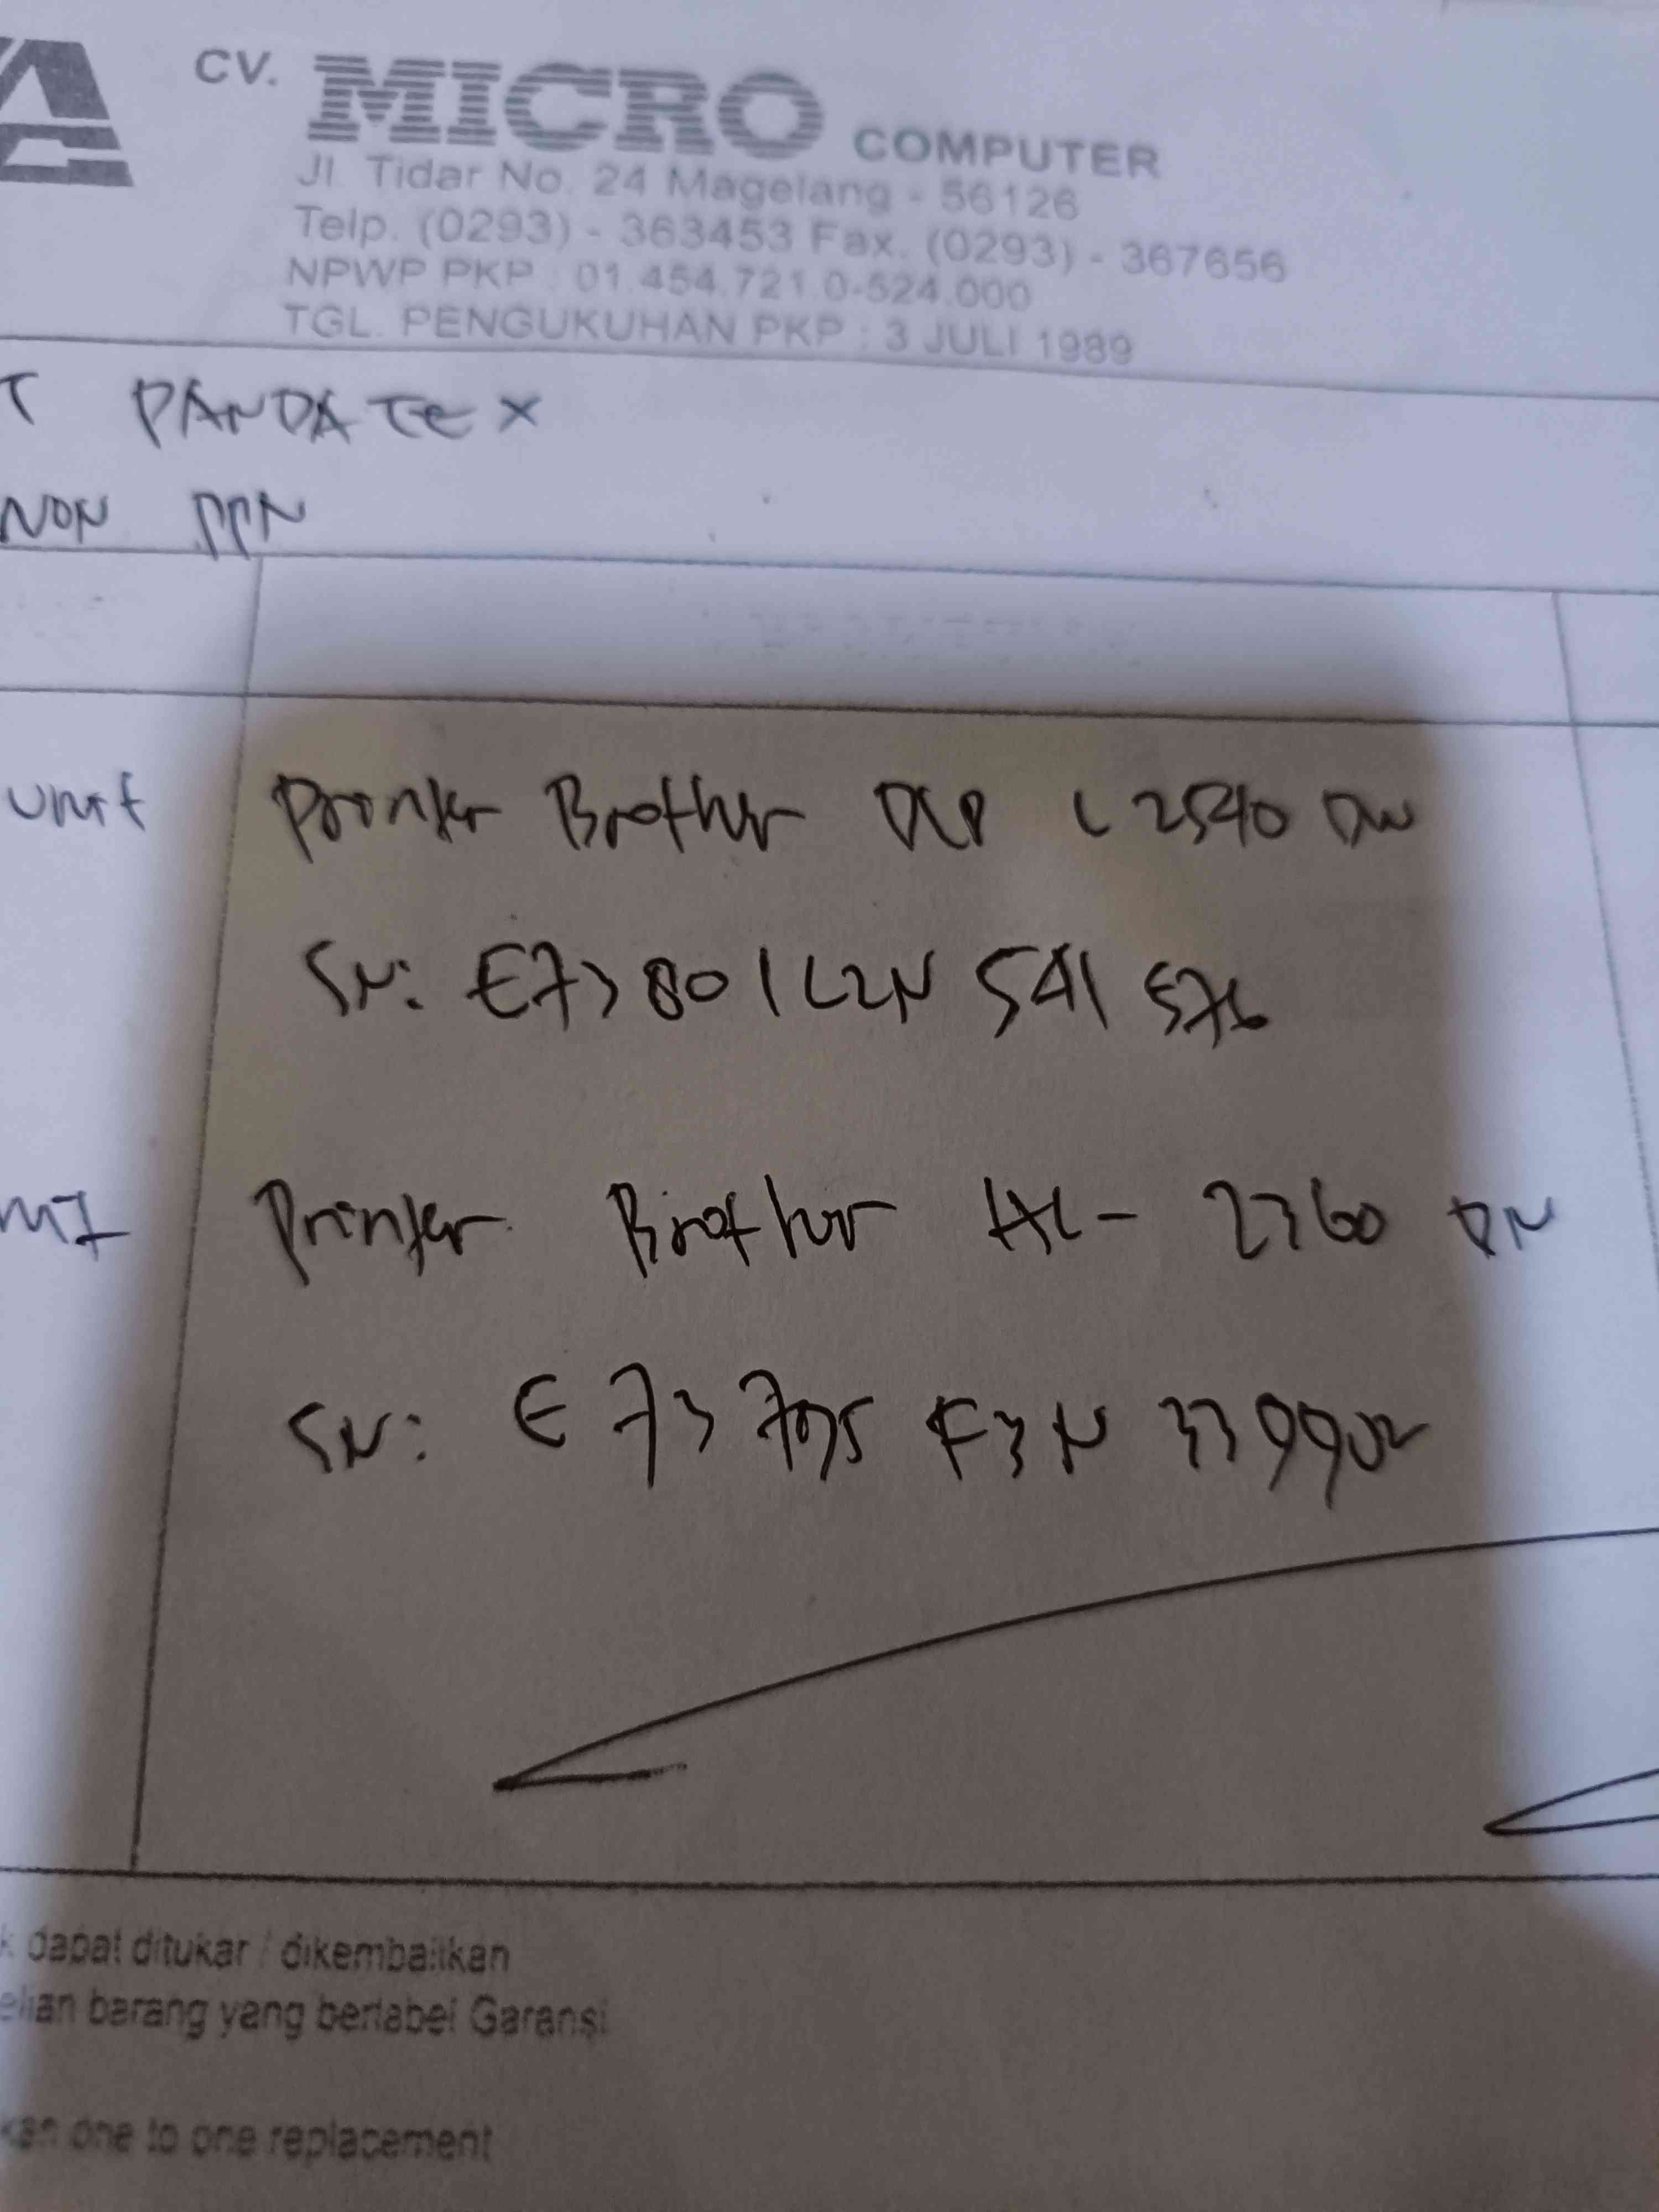 CV. MICRO COMPUTER
Jl. Tidar No. 24 Magelang - 56126
Telp. (0293) - 363453 Fax. (0293) - 367656
NPWP PKP : 01.454.721.0-524.000
TGL. PENGUKUHAN PKP : 3 JULI 1989
T PANDATEX
NON PPN
unit Printer Brother DCP L2540 DW
SN: E73801L2N541576
Printer Brother HL- 2360 DN
SN: E73795F3N339902
dapat ditukar / dikembalikan
elian barang yang berlabel Garansi
kan one to one replacement